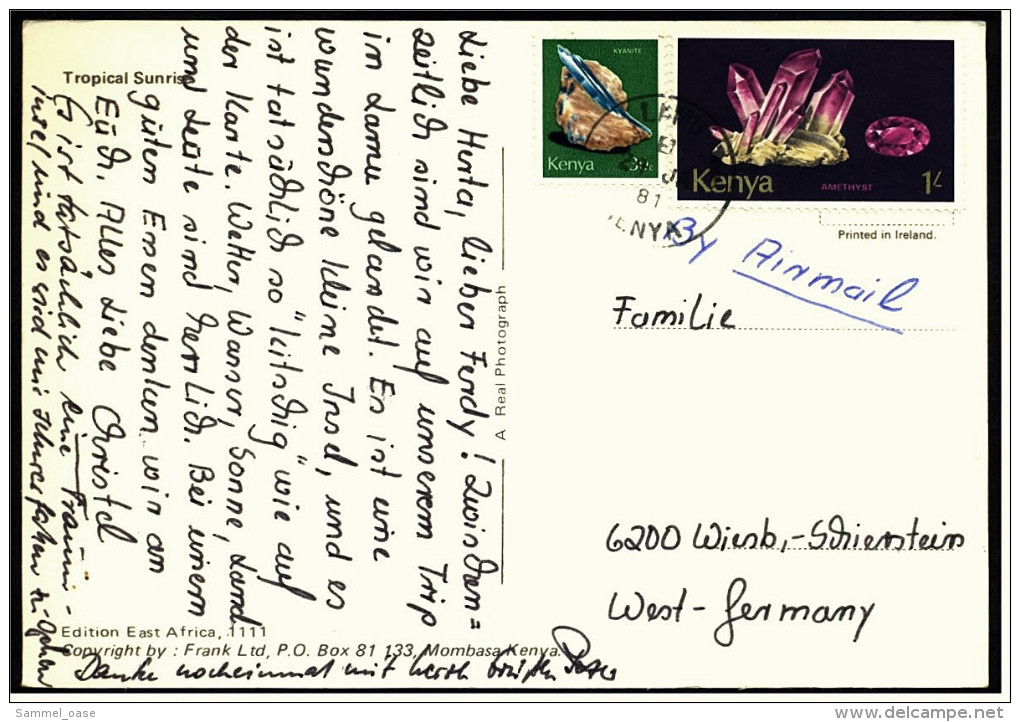 Tropical Sunrise
Liebe Herta, lieber Ferdy! Zwischen=
zeitlich sind wir auf unserem Trip
in Lamu gelandet. Es ist eine
wunderschöne kleine Insel, und es
ist tatsächlich so "kitschig" wie auf
der Karte. Wetter, Wasser, Sonne, Land
und Leute sind herrlich. Bei einem
guten Essen denken wir an
Euch. Alles Liebe Christel
Es ist tatsächlich eine Traum-
insel und es wird mir schwerfallen zu gehen
Danke nocheinmal mit herzl.
Edition East Africa, 1111
Copyright by : Frank Ltd, P.O. Box 81 133, Mombasa Kenya.
A Real Photograph
KYANITE
Kenya
AMETHYST
Kenya 1/-
LAMU
81
KENYA
Printed in Ireland.
By Airmail
Familie
6200 Wiesb.-Schierstein
West-Germany
Sammel_oase
www.delcampe.net